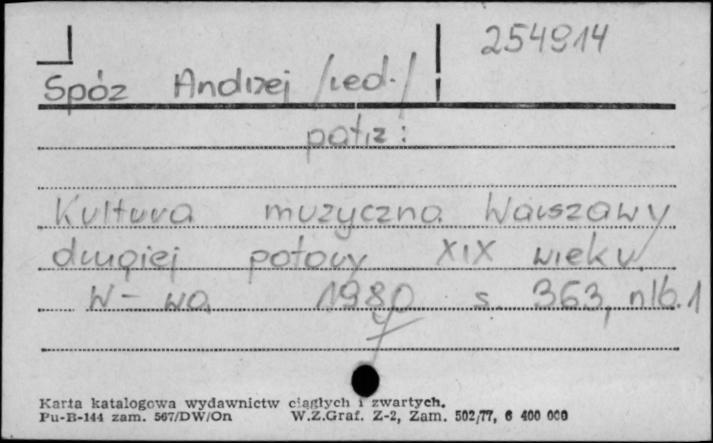 254914
Spóz Andrzej /red./
patrz:
Kultura muzyczna Warszawy
drugiej połowy XIX wieku.
W-wa 1980 s. 363, nlb. 1
Karta katalogowa wydawnictw ciągłych i zwartych.
Pu-B-144 zam. 567/DW/On W.Z.Graf. Z-2, Zam. 502/77, 6 400 000